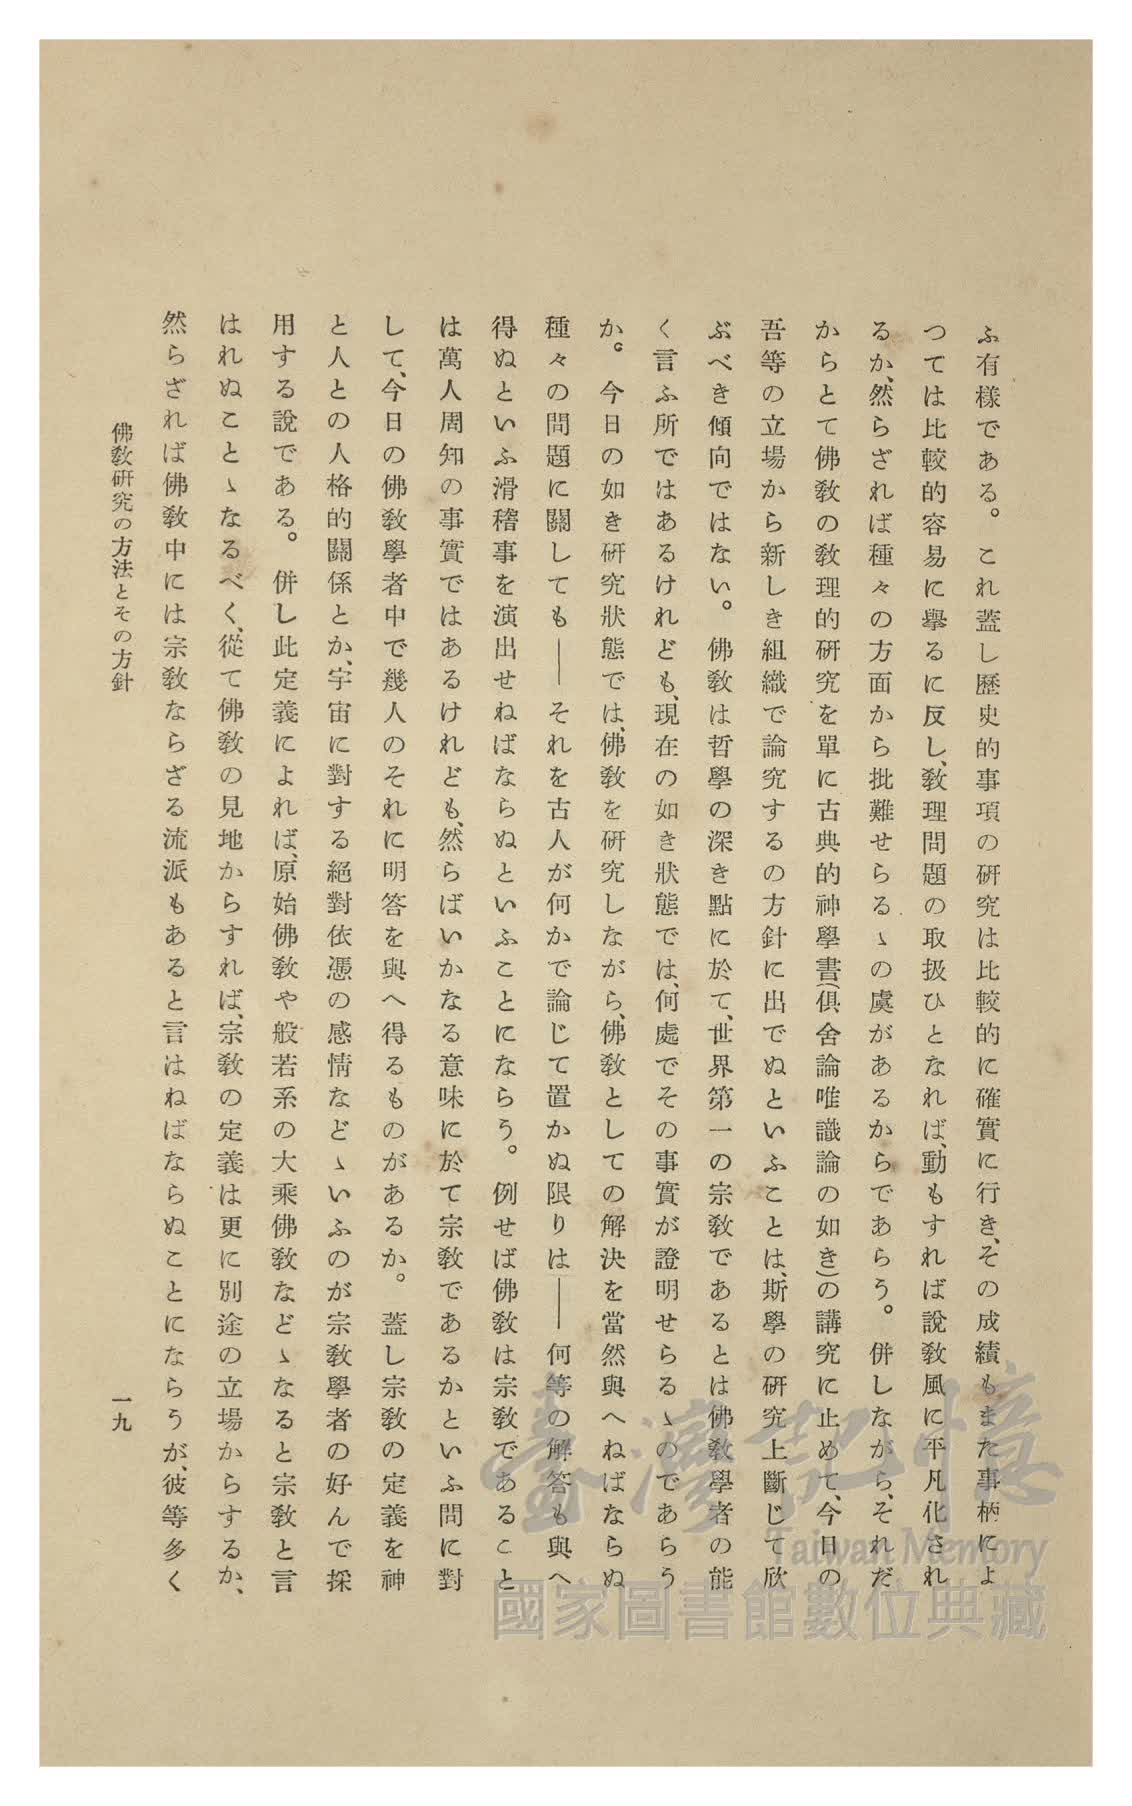 ふ有樣である。これ蓋し歷史的事項の硏究は比較的に確實に行き、その成績もまた事柄によ
つては比較的容易に擧るに反し、敎理問題の取扱ひとなれば、動もすれば說敎風に平凡化され
るか、然らざれば種々の方面から批難せらるゝの虞があるからであらう。併しながら、それだ
からとて佛敎の敎理的硏究を單に古典的神學書(俱舍論唯識論の如き)の講究に止めて、今日の
吾等の立場から新しき組織で論究するの方針に出でぬといふことは、斯學の硏究上斷じて欣
ぶべき傾向ではない。佛敎は哲學の深き點に於て、世界第一の宗敎であるとは佛敎學者の能
く言ふ所ではあるけれども、現在の如き狀態では、何處でその事實が證明せらるゝのであらう
か。今日の如き硏究狀態では、佛敎を硏究しながら、佛敎としての解決を當然與へねばならぬ
種々の問題に關しても――それを古人が何かで論じて置かぬ限りは――何等の解答も與へ
得ぬといふ滑稽事を演出せねばならぬといふことにならう。例せば佛敎は宗敎であること
は萬人周知の事實ではあるけれども、然らばいかなる意味に於て宗敎であるかといふ問に對
して、今日の佛敎學者中で幾人のそれに明答を與へ得るものがあるか。蓋し宗敎の定義を神
と人との人格的關係とか、宇宙に對する絕對依憑の感情などゝいふのが宗敎學者の好んで採
用する說である。併し此定義によれば、原始佛敎や般若系の大乘佛敎などゝなると宗敎と言
はれぬことゝなるべく、從て佛敎の見地からすれば、宗敎の定義は更に別途の立場からするか、
然らざれば佛敎中には宗敎ならざる流派もあると言はねばならぬことにならうが、彼等多く
佛敎硏究の方法とその方針
一九
臺灣記憶
Taiwan Memory
國家圖書館數位典藏